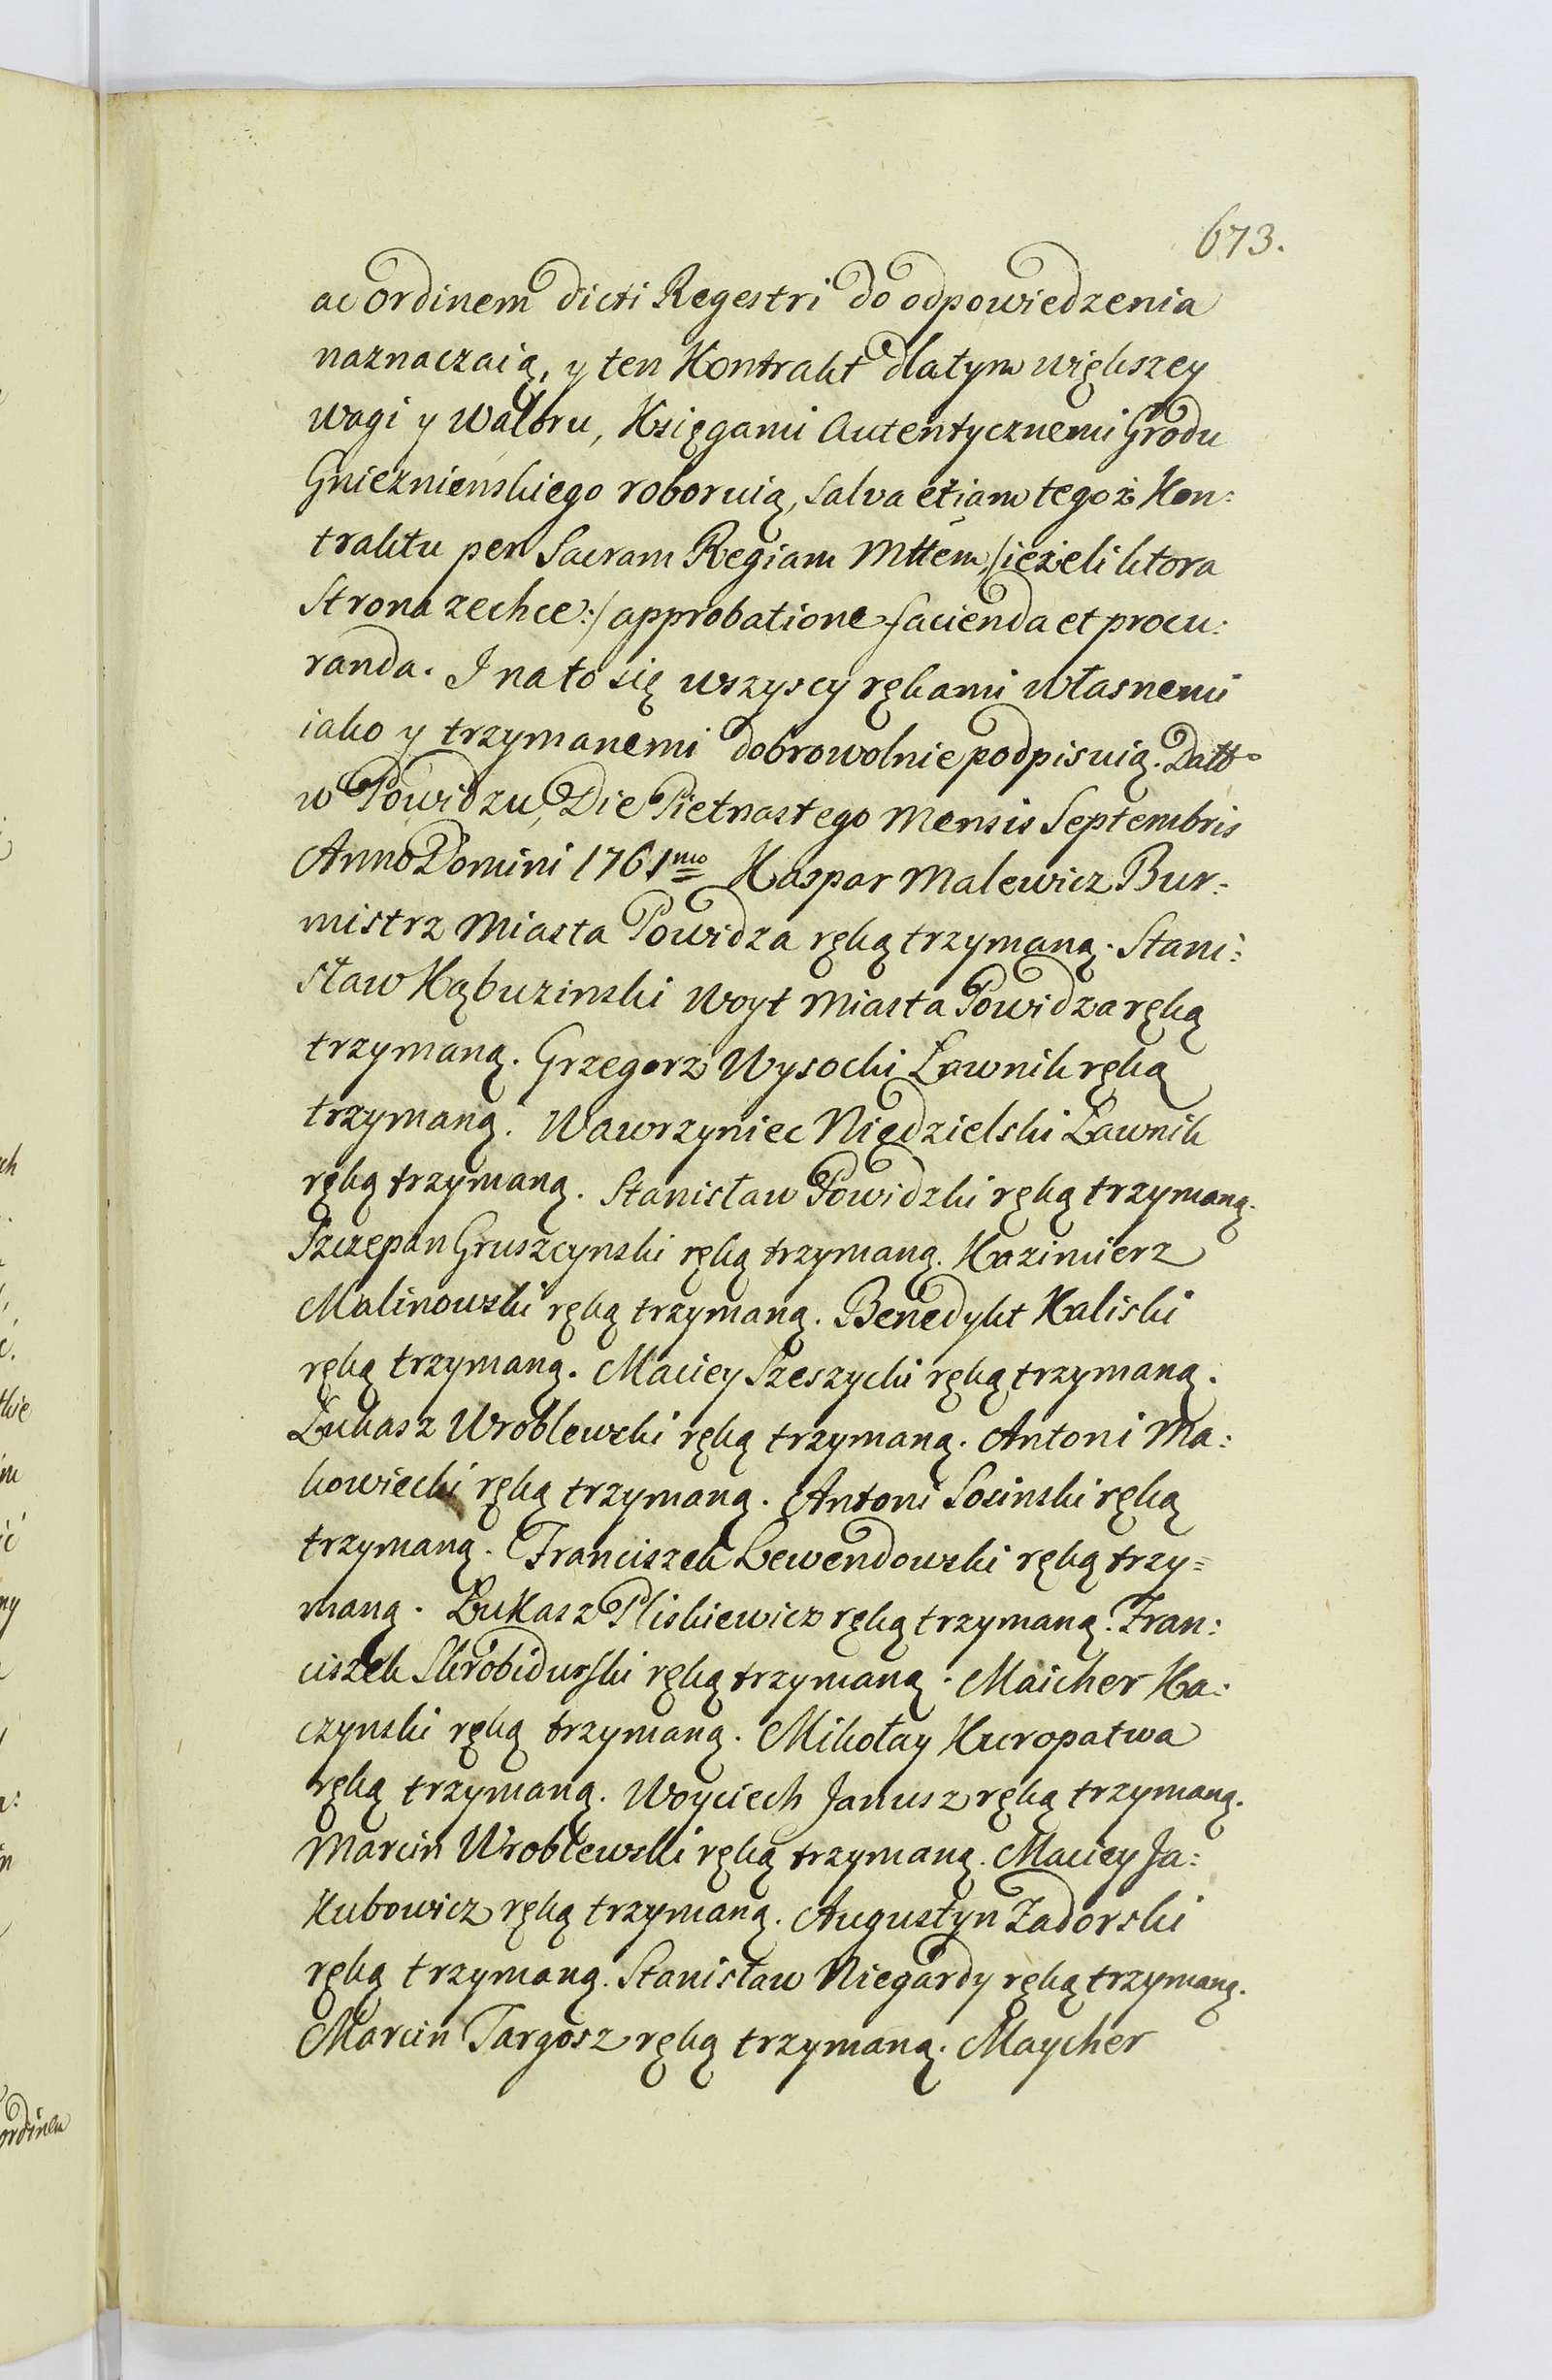 673.
ac ordinem dicti Regestri do odpowiedzenia
naznaczaią, y ten Kontrakt dla tym większey
wagi y waloru, Księgami Autentycznemi Grodu
Gnieznienskiego roboruią, salva etiam tegoż Kon:
traktu per Sacram Regiam Mttem /:ieżeli ktora
Strona zechce:/ approbatione facienda et procu:
randa. I na to się wszyscy rękami własnemi
iako y trzymanemi dobrowolnie podpisuią. Datt
w Powidzu, Die Pietnastego Mensis Septembris
Anno Domini 1761mo Kaspar Malewicz Bur:
mistrz Miasta Powidza ręką trzymaną. Stani:
sław Kąbuzinski Woyt Miasta Powidza ręką
trzymaną. Grzegorz Wysocki Ławnik ręką
trzymaną. Wawrzyniec Niedzielski Ławnik
ręką trzymaną. Stanisław Powidzki ręką trzymaną.
Szczepan Gruszcynski ręką trzymaną. Kazimierz
Malinowski ręką trzymaną. Benedykt Kaliski
ręką trzymaną. Maciey Szeszycki ręką trzymaną.
Łukasz Wroblewski ręką trzymaną. Antoni Ma:
kowiecki ręką trzymaną. Antoni Sosinski ręką
trzymaną. Franciszek Lewendowski ręką trzy=
maną. Łukasz Pliskiewicz ręką trzymaną. Fran:
ciszek Skrobidurski ręką trzymaną. Maicher Ka:
czynski ręką trzymaną. Mikołay Kuropatwa
ręką trzymaną. Woyciech Janusz ręką trzymaną.
Marcin Wroblewski ręką trzymaną. Maciey Ja:
kubowicz ręką trzymaną. Augustyn Zadorski
ręką trzymaną. Stanisław Niegardy ręką trzymaną.
Marcin Targosz ręką trzymaną. Maycher
ordinem